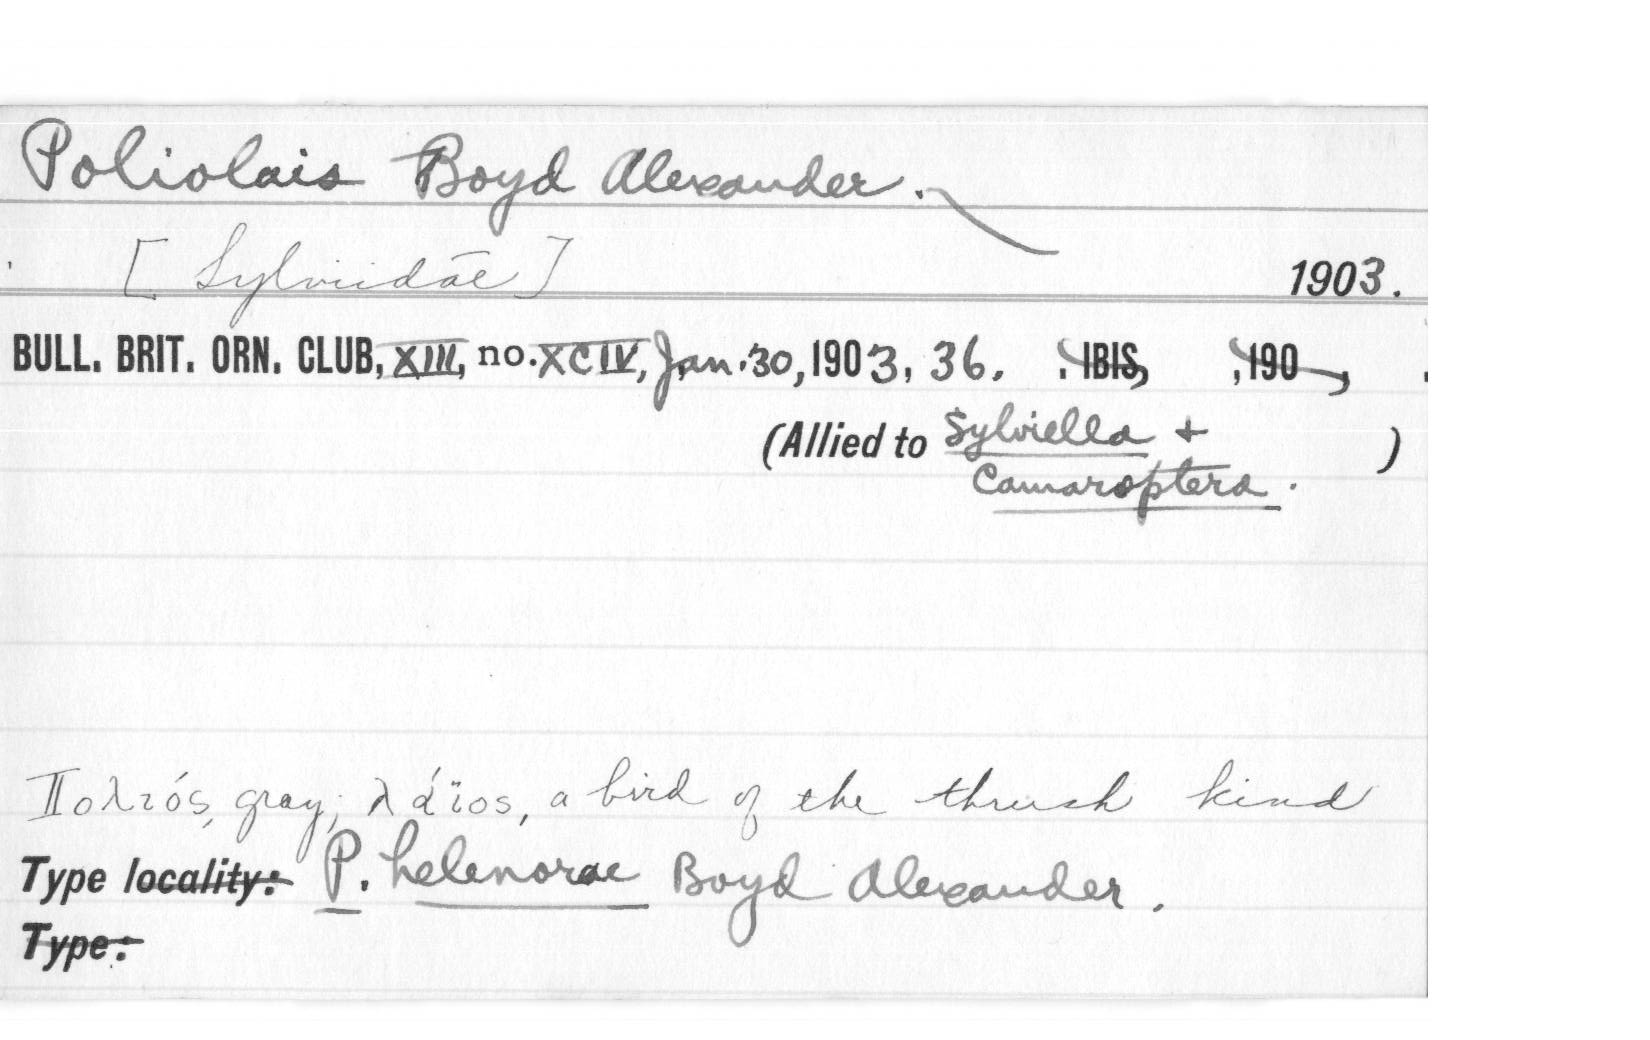 Poliolais Boyd Alexander.
[Sylviidae] 1903.
BULL. BRIT. ORN. CLUB, XIII, no. XCIV, Jan. 30, 1903, 36. . IBIS, , 190 , .
(Allied to Sylviella + )
Camaroptera.
Πολιός, gray; λάϊος, a bird of the thrush kind
Type locality: P. helenorae Boyd Alexander.
Type: